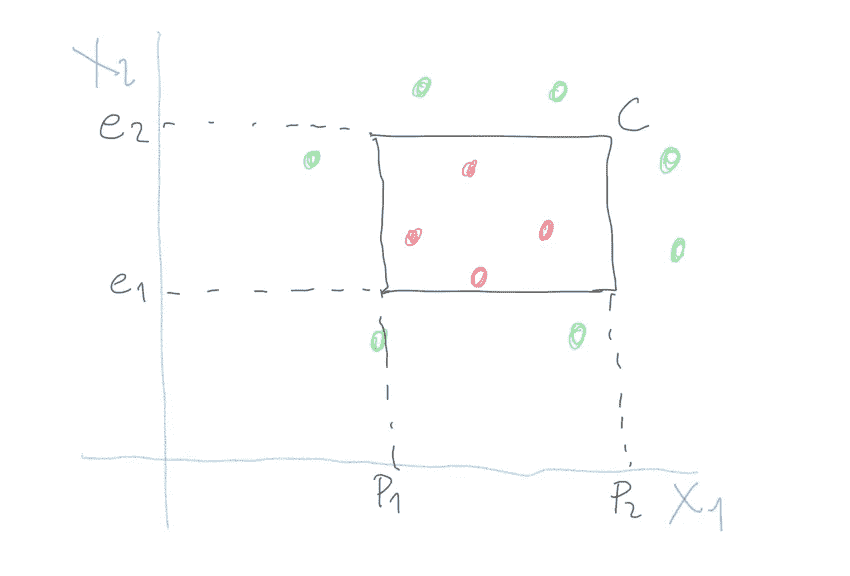 X2
e2
C
e1
P1
P2
X1